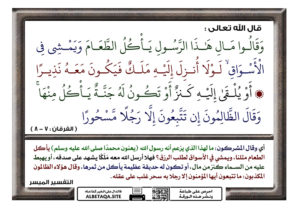 قال الله تعالى :
وَقَالُوا مَالِ هَٰذَا الرَّسُولِ يَأْكُلُ الطَّعَامَ وَيَمْشِي فِي
الْأَسْوَاقِ ۙ لَوْلَا أُنزِلَ إِلَيْهِ مَلَكٌ فَيَكُونَ مَعَهُ نَذِيرًا
أَوْ يُلْقَىٰ إِلَيْهِ كَنزٌ أَوْ تَكُونُ لَهُ جَنَّةٌ يَأْكُلُ مِنْهَا ۚ
وَقَالَ الظَّالِمُونَ إِن تَتَّبِعُونَ إِلَّا رَجُلًا مَّسْحُورًا
( الفرقان : ٧ - ٨ )
أي وقال المشركون: ما لهذا الذي يزعم أنه رسول الله (يعنون محمدًا صلى الله عليه وسلم) يأكل
الطعام مثلنا، ويمشي في الأسواق لطلب الرزق؟ فهلا أرسل الله معه مَلَكًا يشهد على صدقه، أو يهبط
عليه من السماء كنز من مال، أو تكون له حديقة عظيمة يأكل من ثمرها، وقال هؤلاء الظالمون
المكذبون: ما تتبعون أيها المؤمنون إلا رجلا به سحر غلب على عقله.
التفسير الميسر
احرص على طباعة
ونشر هذه الورقة
ALBETAQA.SITE